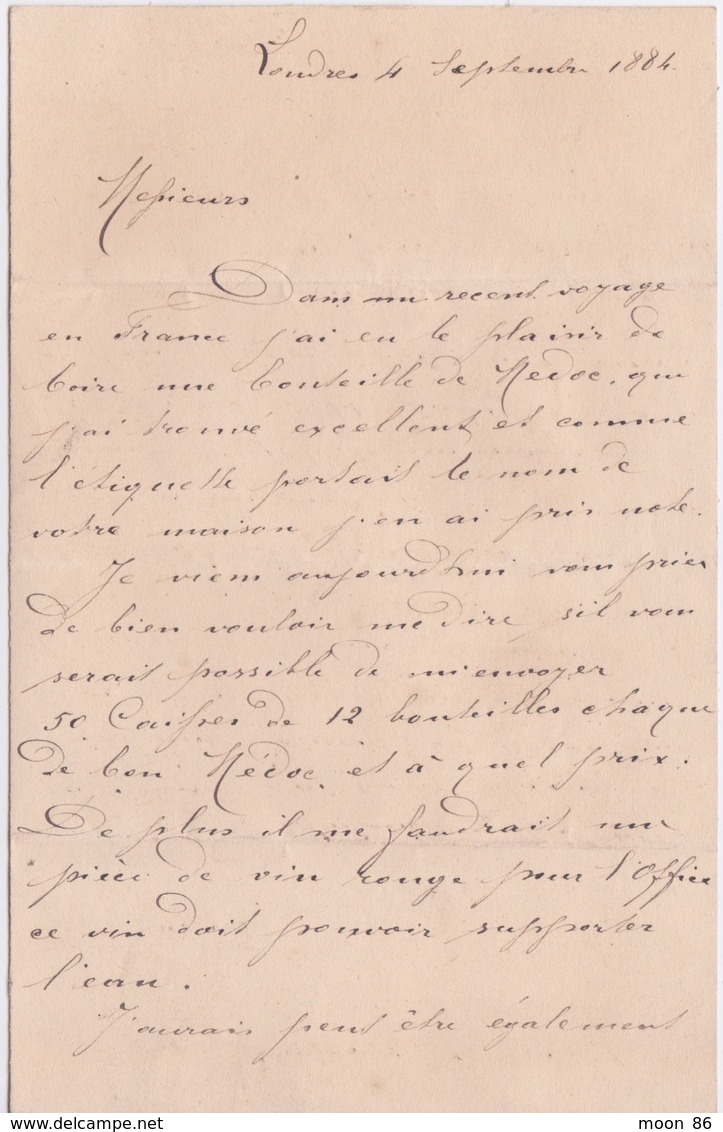 Londres 4 Septembre 1884.
Messieurs
Dans un recent voyage
en France j'ai eu le plaisir de
boire une bouteille de Medoc, que
j'ai trouvé excellent et comme
l'étiquette portait le nom de
votre maison j'en ai pris note.
Je viens aujourd'hui vous prier
de bien vouloir me dire, s'il vous
serait possible de m'envoyer
50 Caisses de 12 bouteilles chaque
de bon Médoc et à quel prix.
De plus il me faudrait une
pièce de vin rouge pour l'Office
ce vin doit pouvoir supporter
l'eau.
J'aurais peut être également
moon 86